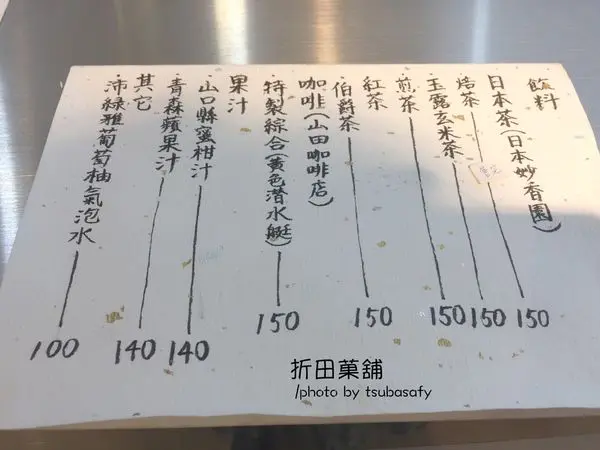 飲料
日本茶(日本妙香園)
·焙茶 150
售完
·玉露玄米茶 150
·煎茶 150
紅茶
·伯爵茶 150
咖啡(山田咖啡店)
·特製綜合(黃色潛水艇) 150
果汁
·山口縣蜜柑汁 140
·青森蘋果汁 140
其它
·沛綠雅葡萄柚氣泡水 100
折田菓舖
/photo by tsubasafy